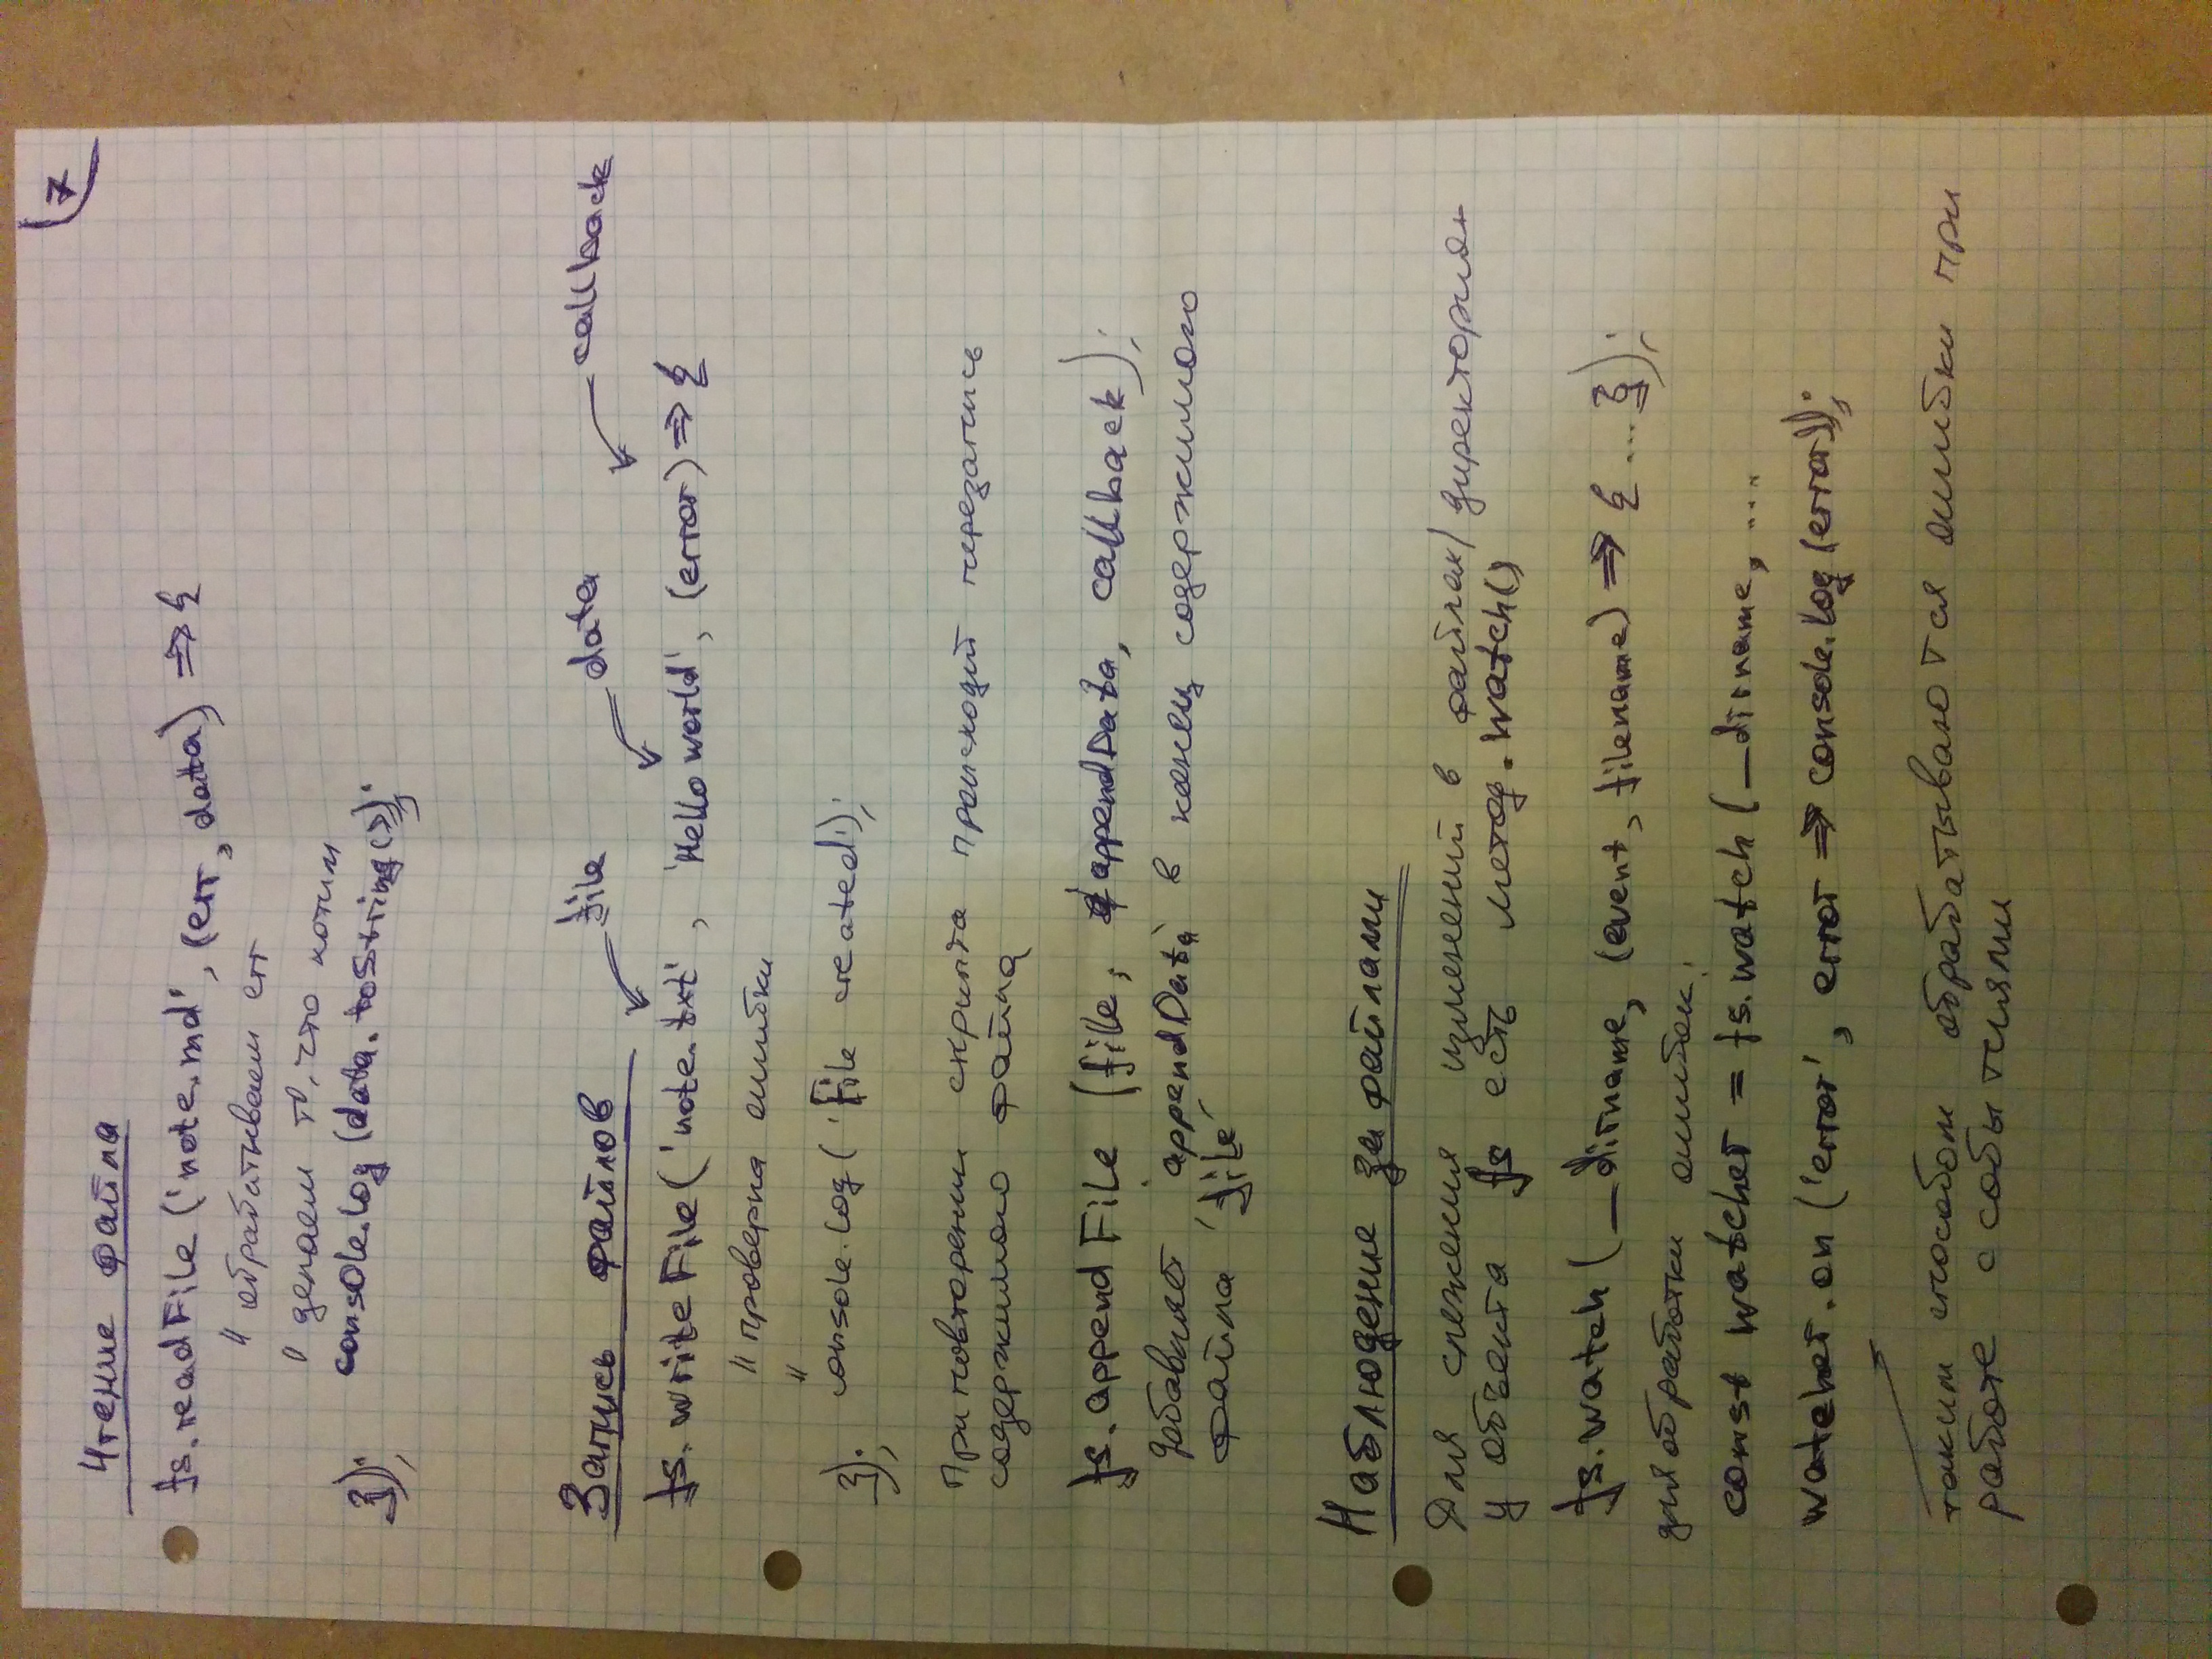 7
Чтение файла
fs.readFile('note.md', (err, data) => {
// обрабатываем err
// делаем то, что хотим
console.log(data.toString());
});
Запись файлов
file
data
callback
fs.writeFile('note.txt', 'Hello world', (error) => {
// проверка ошибки
//
console.log('File created');
});
При повторении скрипта происходит перезапись
содержимого файла
fs.appendFile (file, appendData, callback);
добавляет 'appendData' в конец содержимого
файла 'file'
Наблюдение за файлами
Для слежения изменений в файлах/директориях
у объекта fs есть метод .watch()
fs.watch(__dirname, (event, filename) => { ... });
для обработки ошибок:
const watcher = fs.watch(__dirname, ....
watcher.on('error', error => console.log(error));
таким способом обрабатываются ошибки при
работе с событиями